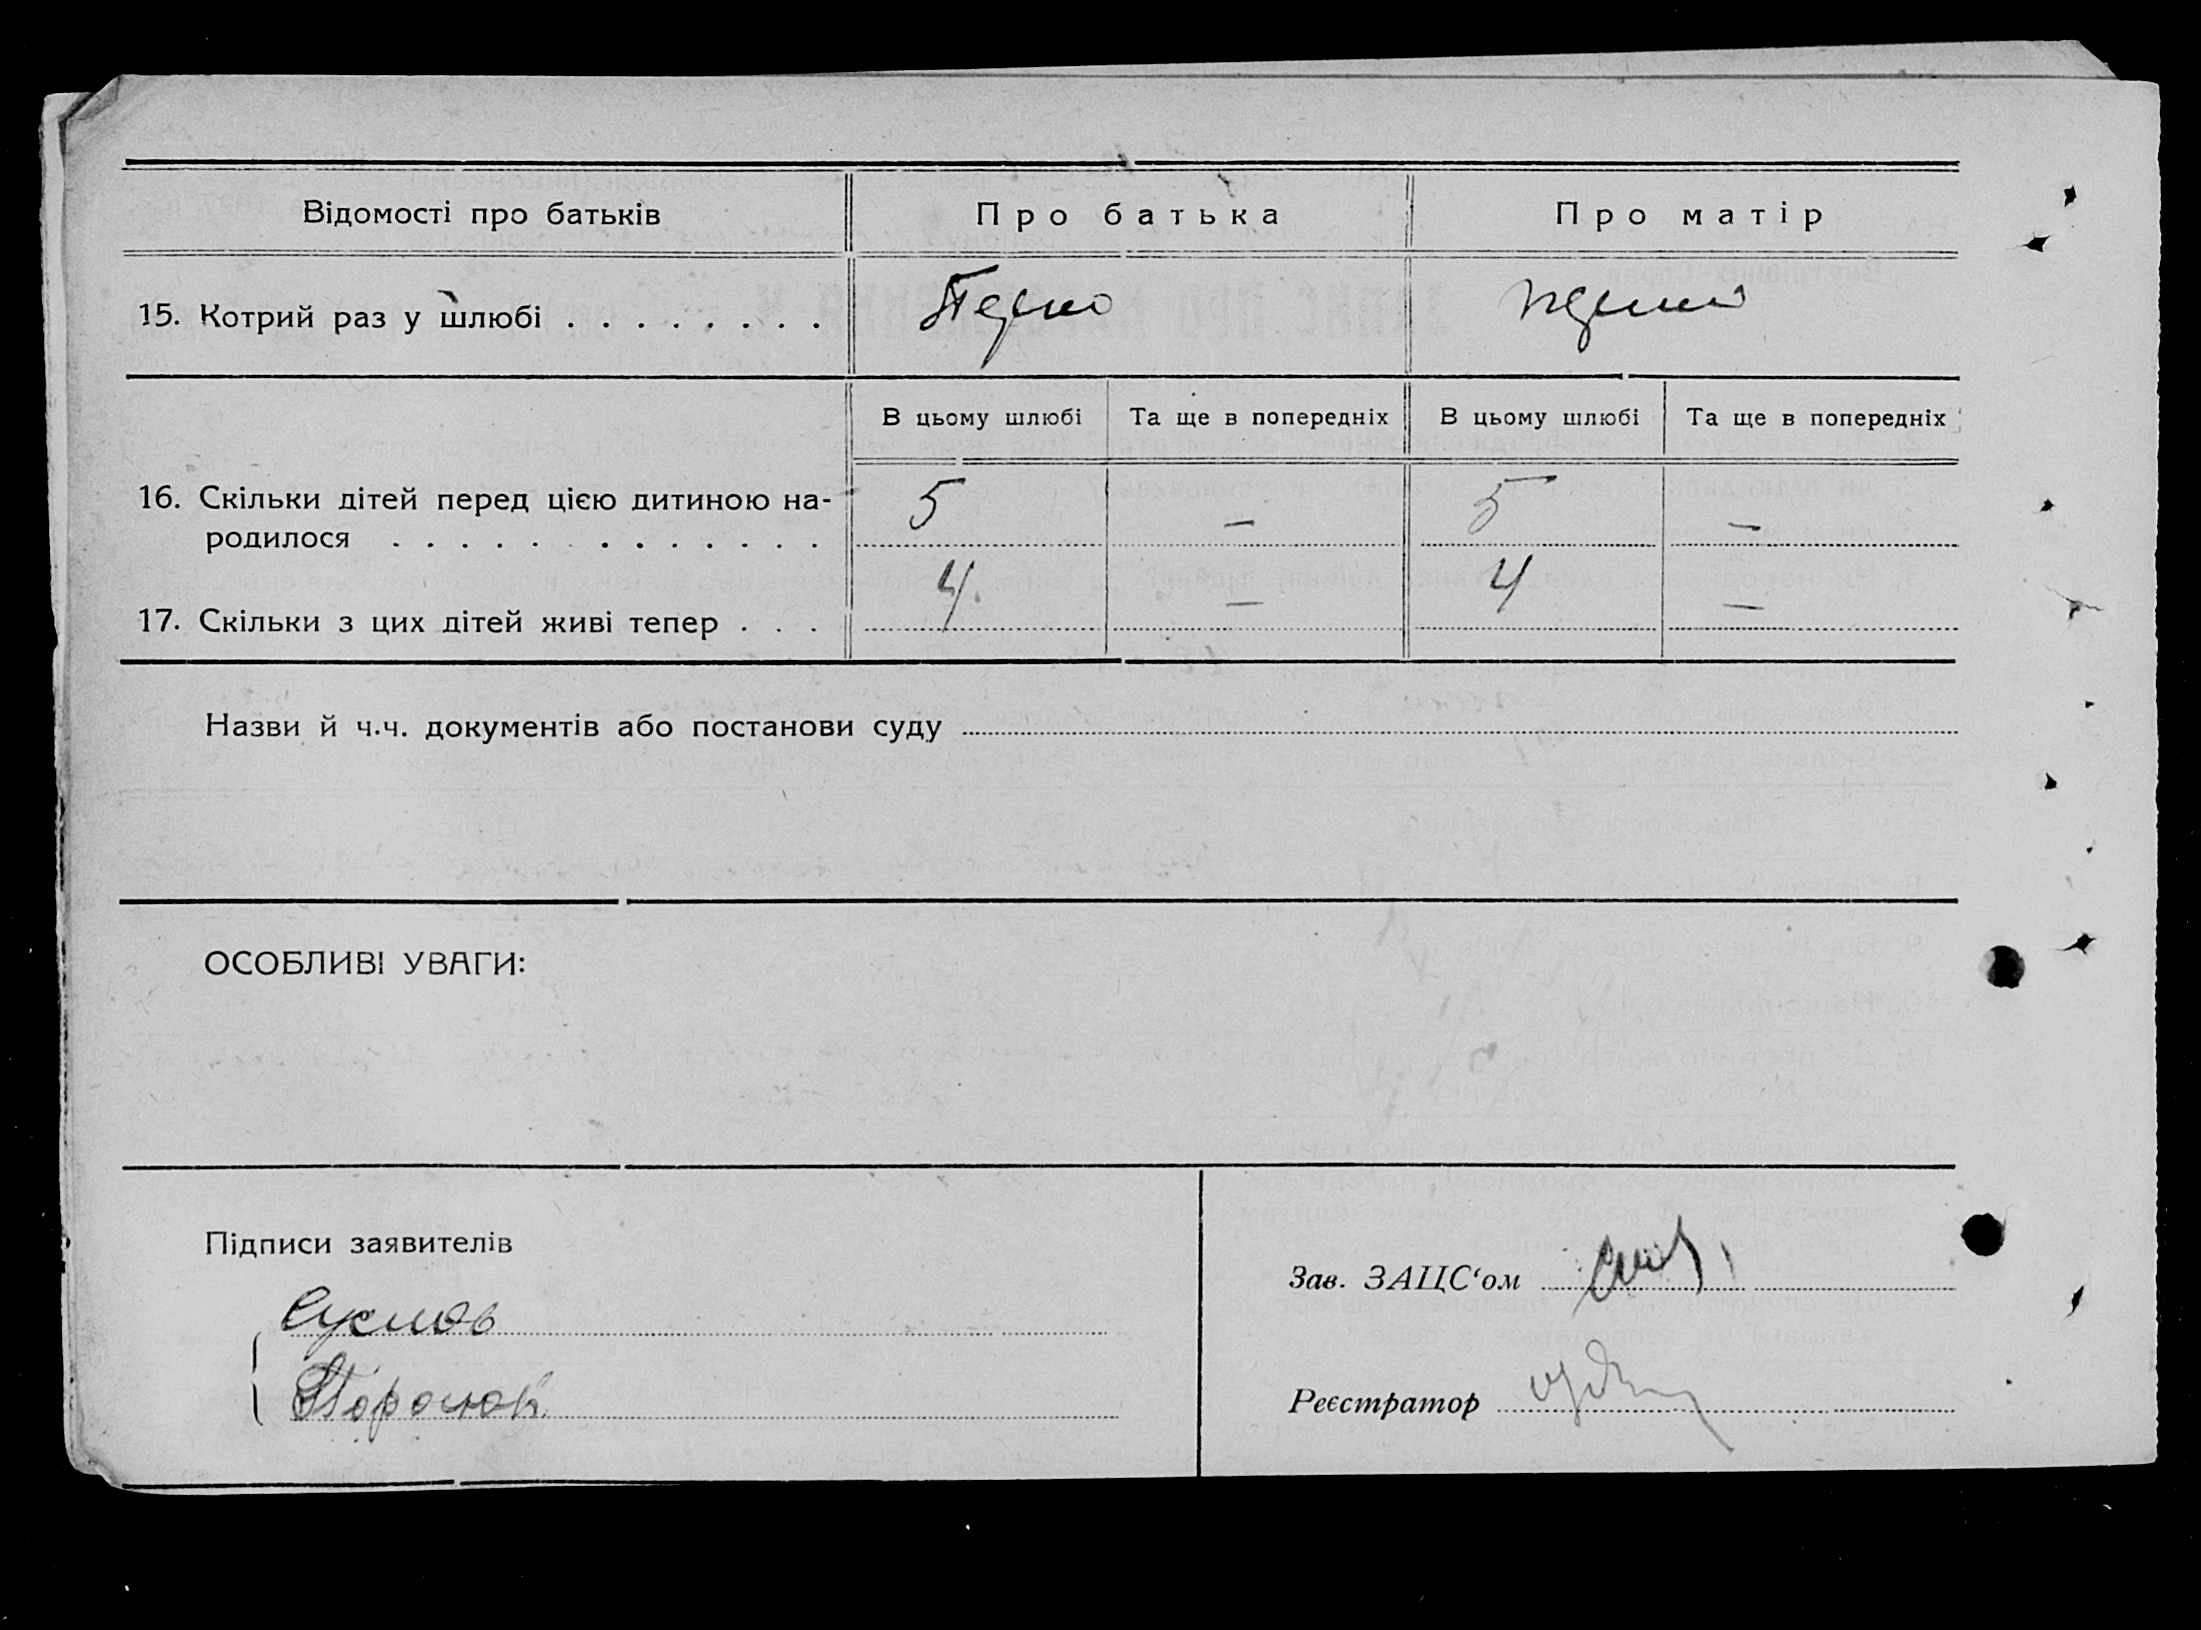 Відомості про батьків
Про батька
Про матір
15. Котрий раз у шлюбі . . . . . . . .
В цьому шлюбі
Та ще в попередніх
В цьому шлюбі
Та ще в попередніх
16. Скільки дітей перед цією дитиною на-
родилося . . . . . . . . . . . .
5
—
5
—
17. Скільки з цих дітей живі тепер . . .
4
—
4
—
Назви й ч.ч. документів або постанови суду
ОСОБЛИВІ УВАГИ:
Підписи заявителів
Зав. ЗАЦС‘ом
Реєстратор